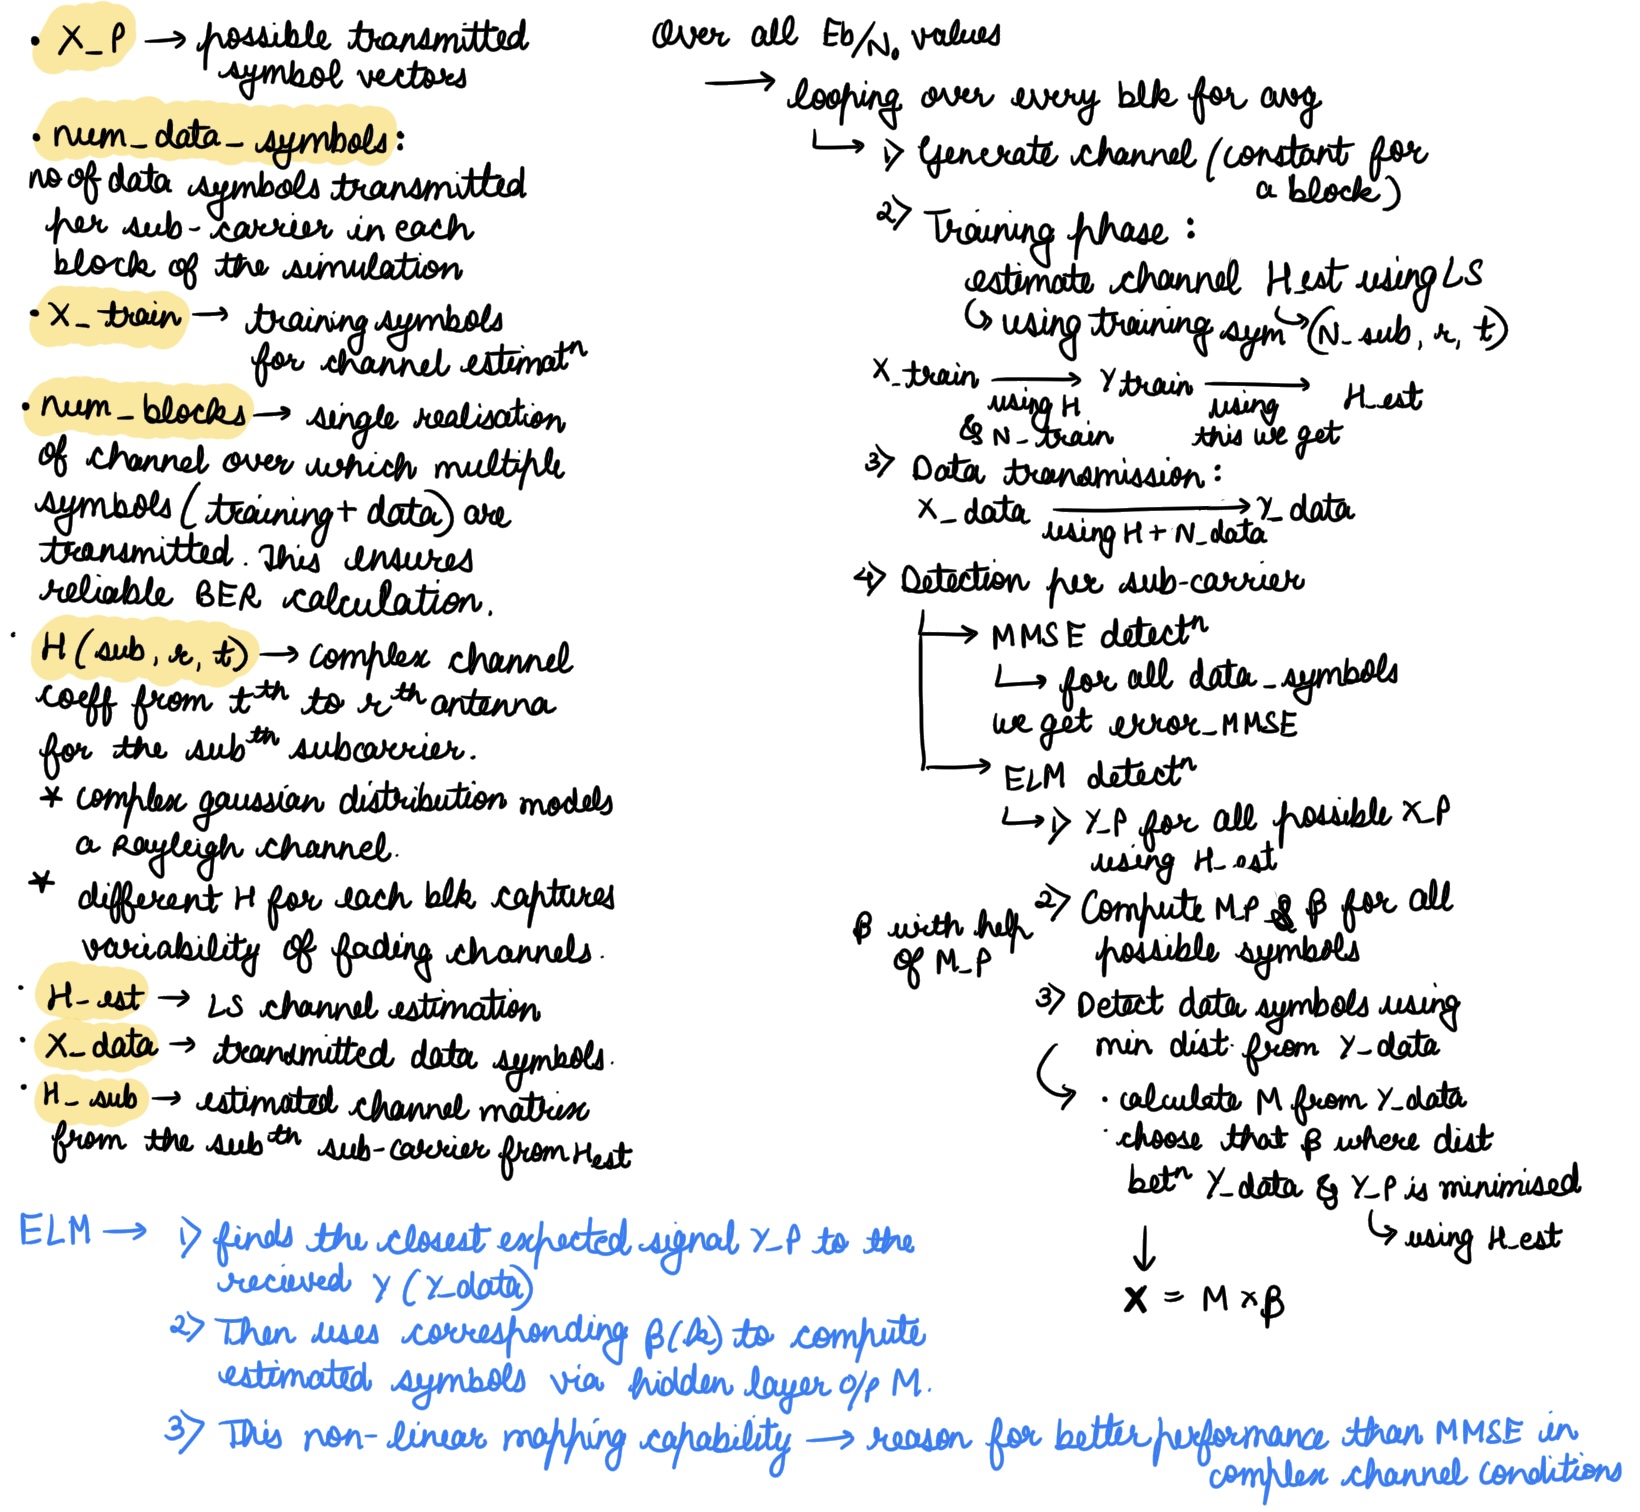 • X_P → possible transmitted
symbol vectors
• num_data_symbols :
no of data symbols transmitted
per sub-carrier in each
block of the simulation
• X_train → training symbols
for channel estimatⁿ
• num_blocks → single realisation
of channel over which multiple
symbols (training + data) are
transmitted. This ensures
reliable BER calculation.
• H (sub, r, t) → complex channel
coeff from tᵗʰ to rᵗʰ antenna
for the subᵗʰ subcarrier.
* complex gaussian distribution models
a Rayleigh channel.
* different H for each blk captures
variability of fading channels.
• H_est → LS channel estimation
• X_data → transmitted data symbols.
• H_sub → estimated channel matrix
from the subᵗʰ sub-carrier from Hest
Over all Eb/N₀ values
→ looping over every blk for avg
↳ 1) Generate channel (constant for
a block)
2) Training phase :
estimate channel H_est using LS
↳ using training sym ↳ (N_sub, r, t)
X_train → Y train → H_est
using H using
& N_train this we get
3) Data transmission :
X_data → Y_data
using H + N_data
4) Detection per sub-carrier
→ MMSE detectⁿ
↳ for all data_symbols
we get error_MMSE
→ ELM detectⁿ
↳ 1) Y_P for all possible X_P
using H_est
2) Compute M_P & β for all
possible symbols
β with help
of M_P
3) Detect data symbols using
min dist from Y_data
• calculate M from Y_data
• choose that β where dist
betⁿ Y_data & Y_P is minimised
↳ using H_est
↓
X = M × β
ELM → 1) finds the closest expected signal Y_P to the
recieved Y (Y_data)
2) Then uses corresponding β(k) to compute
estimated symbols via hidden layer o/p M.
3) This non-linear mapping capability → reason for better performance than MMSE in
complex channel conditions